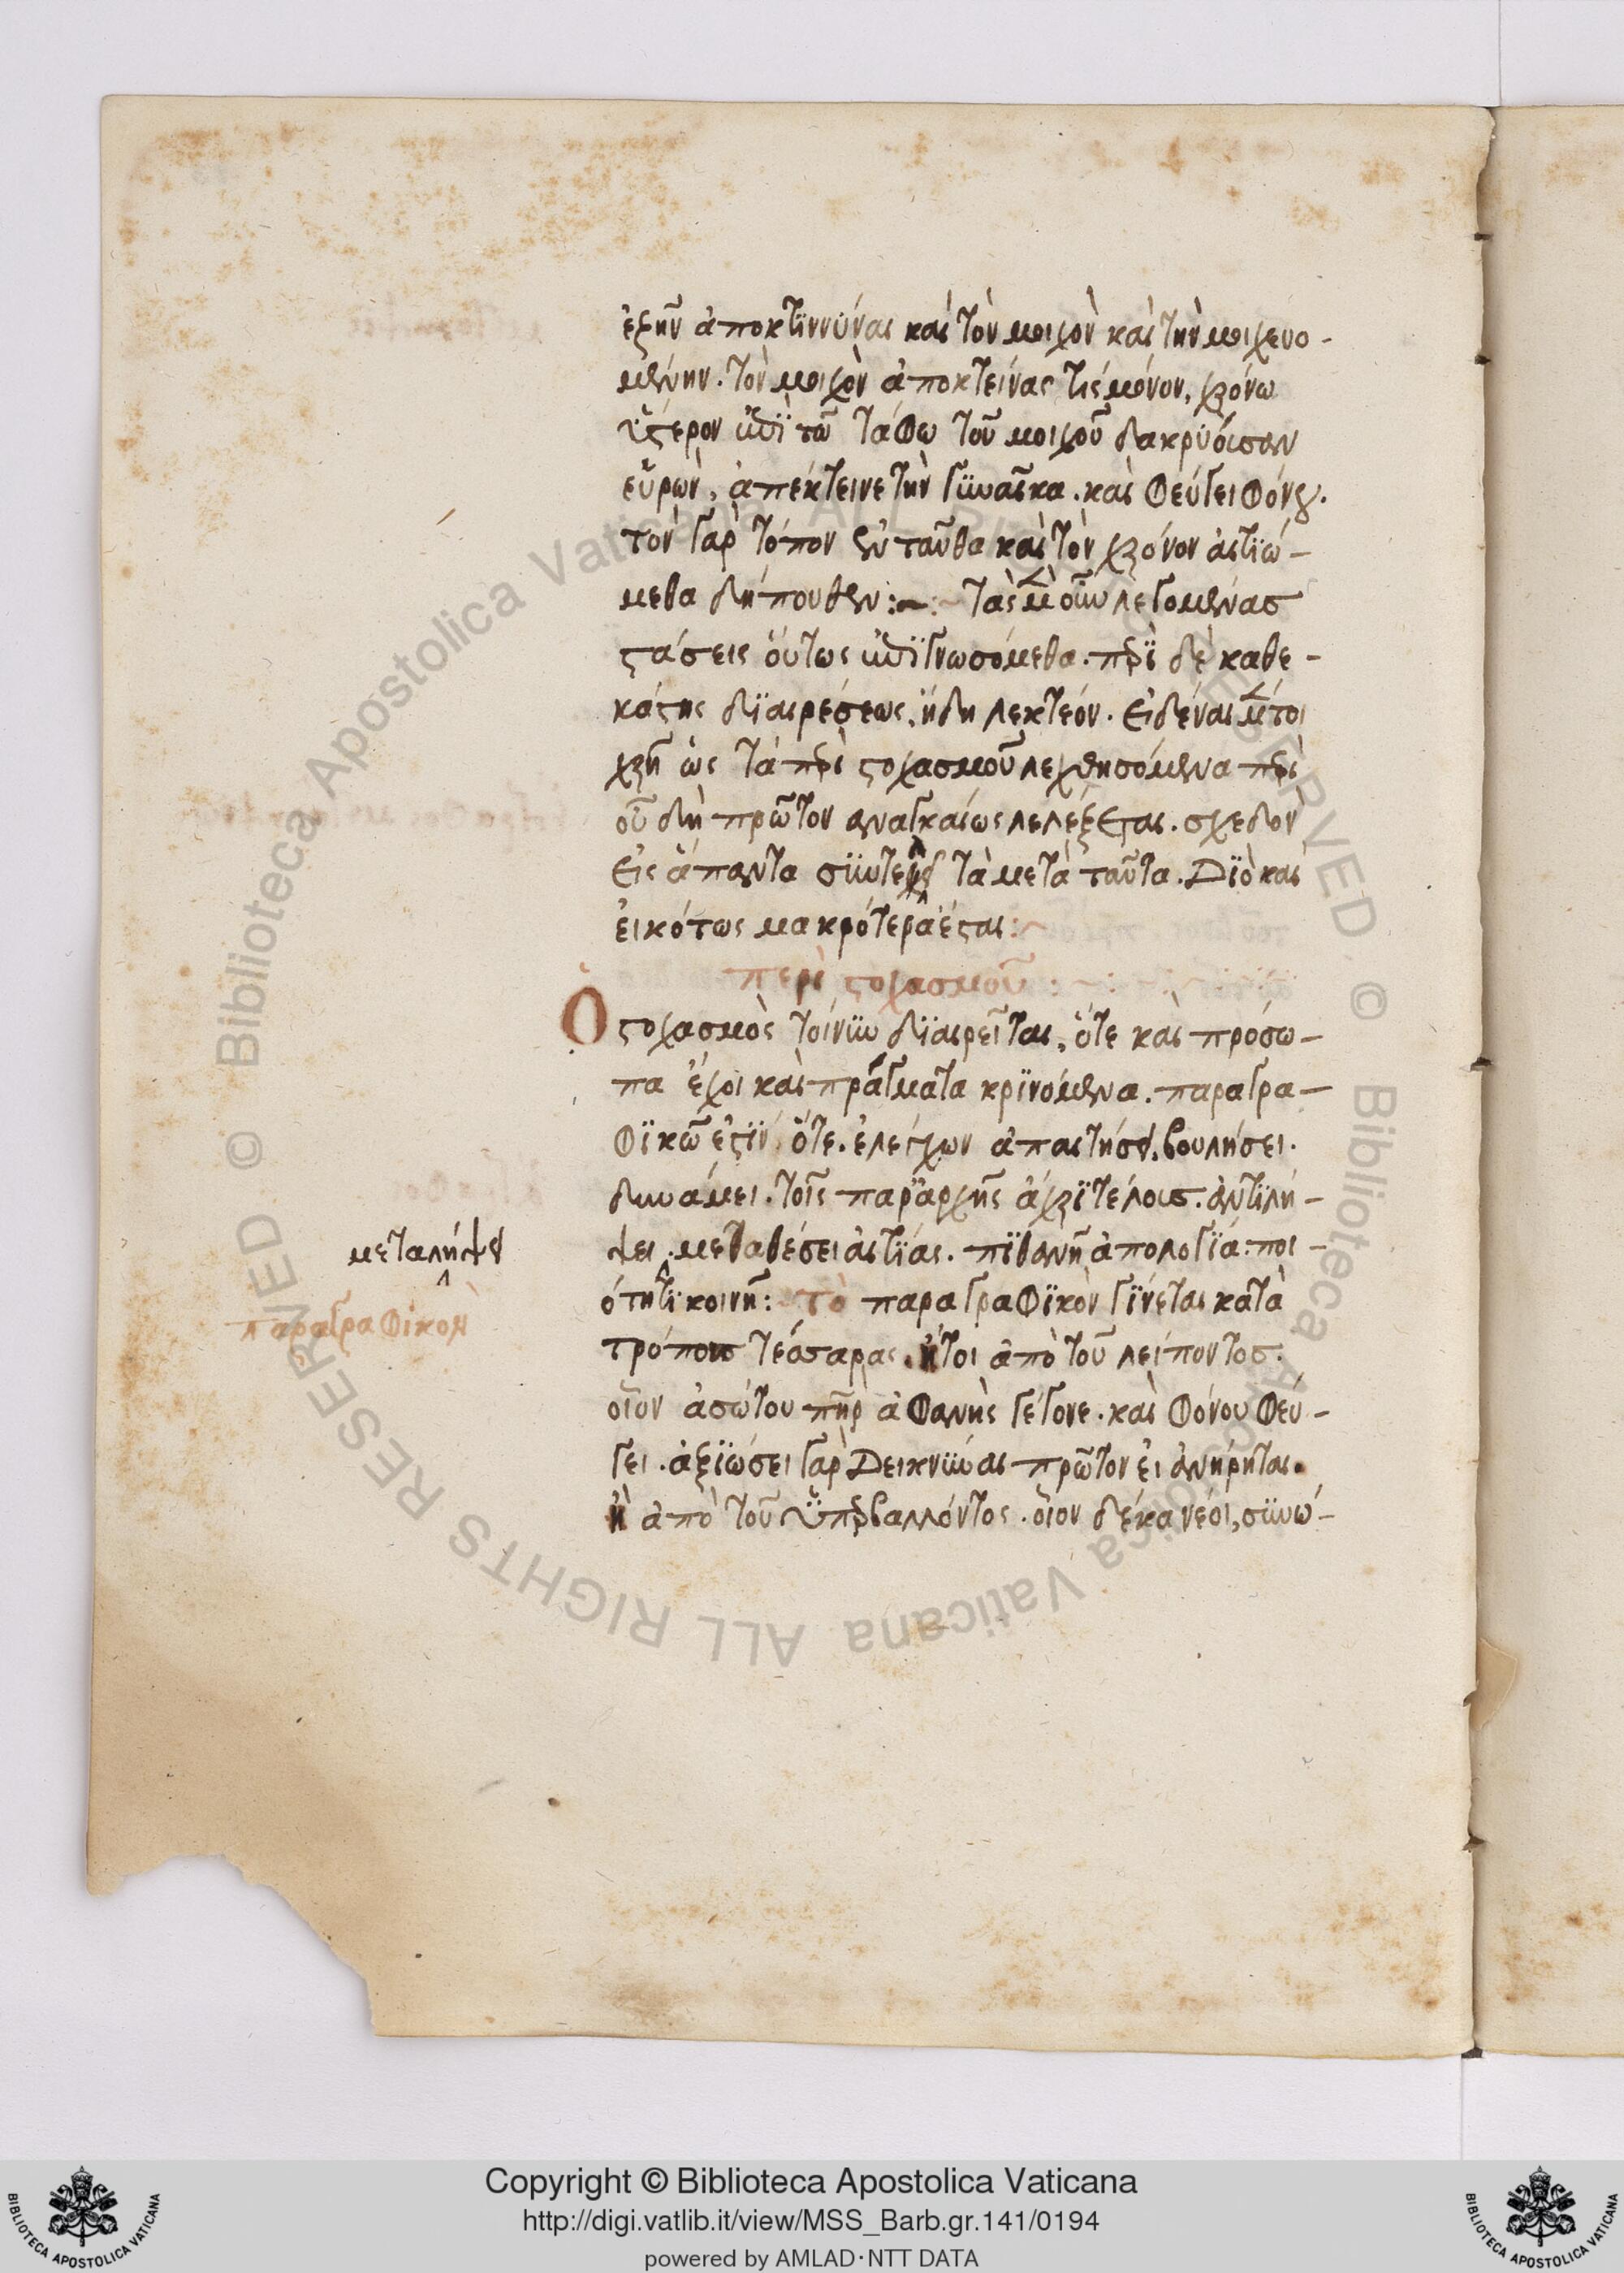 ἐξῆν ἀποκτιννύναι καὶ τὸν μοιχὸν καὶ τὴν μοιχευο-
μένην. τὸν μοιχὸν ἀποκτείνας τὶς μόνον, χρόνω
ὕστερον ἐπὶ τῶ τάφω τοῦ μοιχοῦ δακρύουσαν
εὑρὼν, ἀπέκτεινε τὴν γυναῖκα. καὶ φεύγει φόνου.
τὸν γὰρ τόπον ἐνταῦθα καὶ τὸν χρόνον αἰτιώ-
μεθα δήπουθεν:~ τὰς μὲν οὖν λεγομένας
στάσεις οὕτως ἐπιγνωσόμεθα. περὶ δὲ καθε-
κάστης διαιρέσεως, ἤδη λεκτέον. Εἰδέναι μέντοι
χρὴ ὡς τὰ περὶ στοχασμοῦ λεχθησόμενα περὶ
οὗ δὴ πρῶτον ἀναγκαίως λελέξεται. σχεδὸν
εἰς ἅπαντα συντελεῖ τὰ μετὰ ταῦτα. Διὸ καὶ
εἰκότως μακρότερα ἔσται:~
περὶ στοχασμοῦ:~
Ὁ στοχασμὸς τοίνυν διαιρεῖται, ὅτε καὶ πρόσω-
πα ἔχοι καὶ πράγματα κρινόμενα. παραγρα-
φικῶ ἐστὶν, ὅτε. ἐλέγχων ἀπαιτήσει. βουλήσει.
δυνάμει. τοῖς παρ' ἀρχῆς ἄχρι τέλους. ἀντιλή-
μεταλήψει
ψει. μεταθέσει αἰτίας. πιθανῆ ἀπολογία. ποι-
ότητι κοινῆ: τὸ παραγραφικὸν γίνεται κατὰ
παραγραφικὸν
τρόπους τέσσαρας. ἤτοι ἀπὸ τοῦ λείποντος.
οἷον ἀσώτου πατὴρ ἀφανὴς γέγονε. καὶ φόνου φεύ-
γει. ἀξιώσει γὰρ Δεικνύναι πρῶτον εἰ ἀνήρηται.
ἢ ἀπὸ τοῦ ὑπερβάλλοντος. οἷον δέκα νέοι, συνώ-
Copyright © Biblioteca Apostolica Vaticana
http://digi.vatlib.it/view/MSS_Barb.gr.141/0194
powered by AMLAD·NTT DATA
BIBLIOTECA APOSTOLICA VATICANA
BIBLIOTECA APOSTOLICA VATICANA
© Biblioteca Apostolica Vaticana ALL RIGHTS RESERVED © Biblioteca Apostolica Vaticana ALL RIGHTS RESERVED